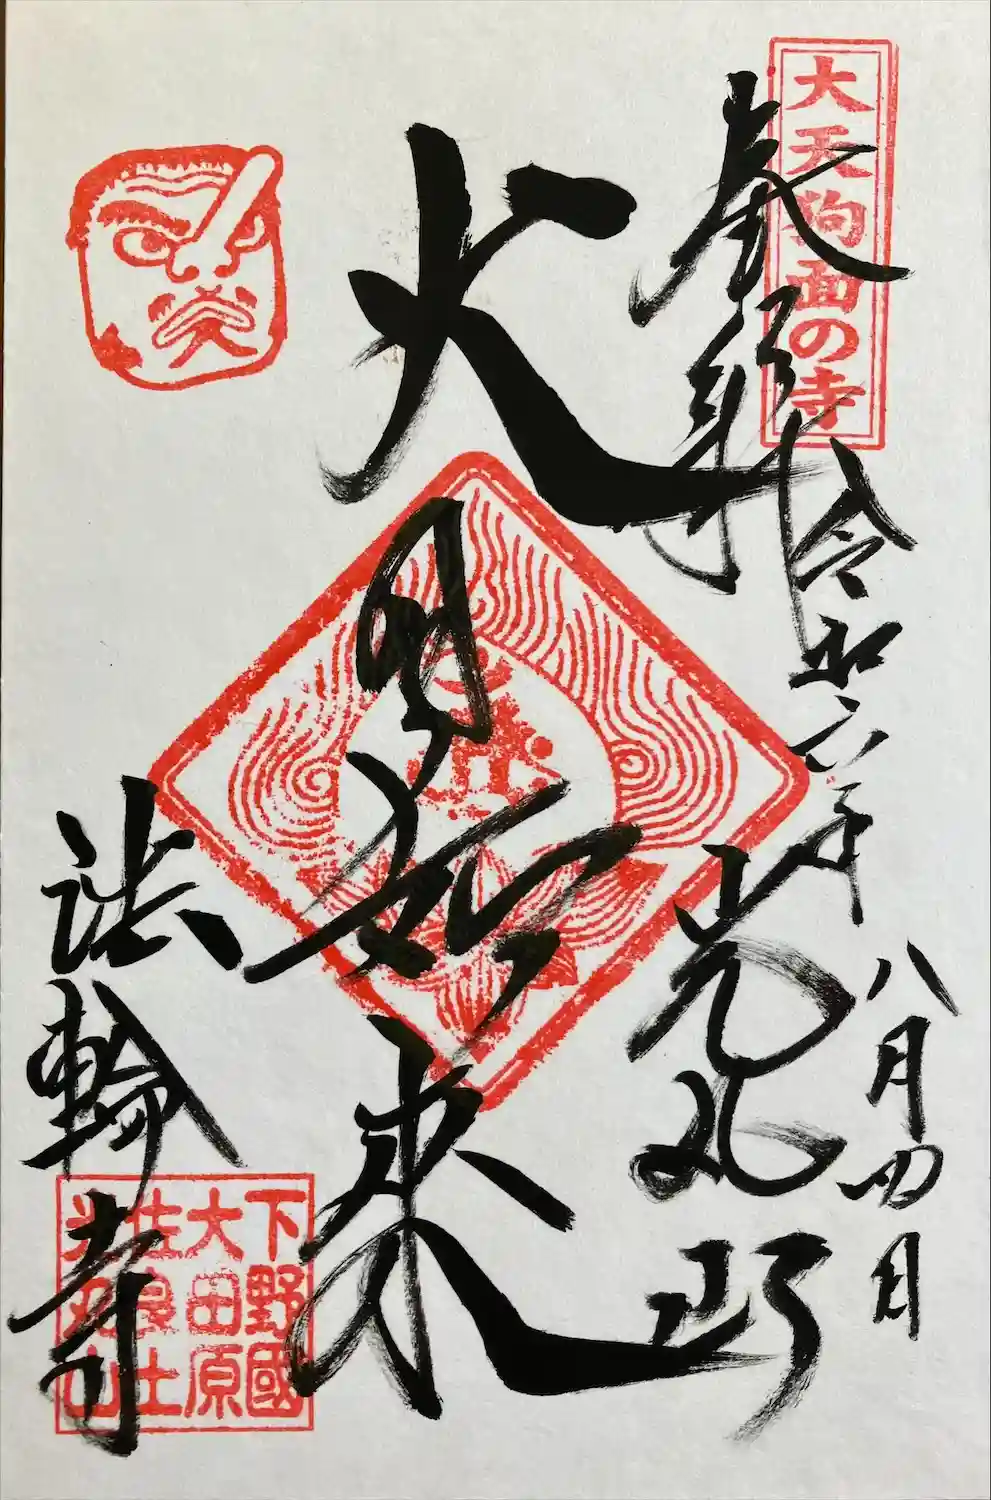 大天狗面の寺
奉拝
令和六年
八月四日
光丸山
大日如来
法輪寺
下野國
大田原
佐良土
光丸山